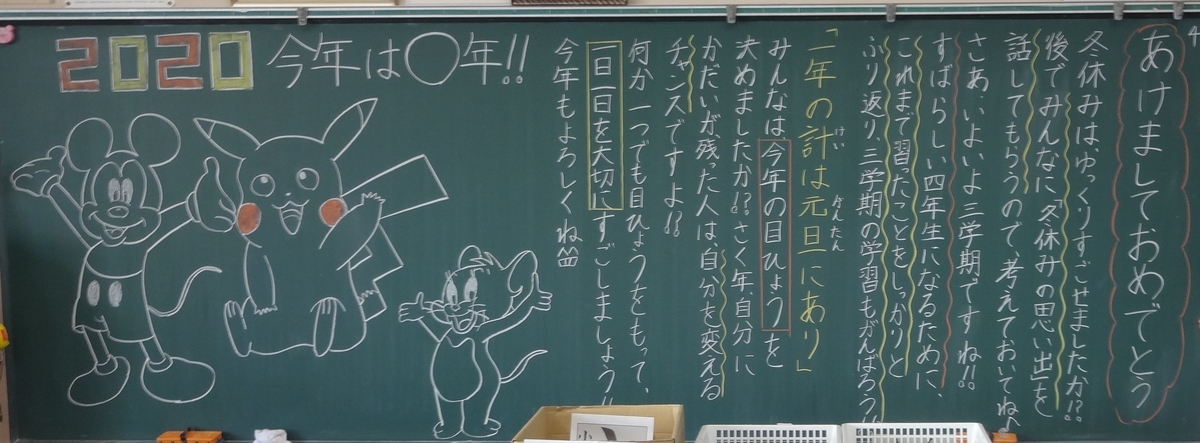 あけましておめでとう
冬休みは、ゆっくりすごせましたか!?
後でみんなに「冬休みの思い出」を
話してもらうので、考えておいてね
さあ、いよいよ三学期ですね!!
すばらしい四年生になるために、
これまで習ったことをしっかりと
ふり返り、三学期の学習もがんばろう!!
「一年の計は元旦にあり」
けい
がんたん
みんなは今年の目ひょうを
決めましたか!?さく年、自分に
かだいが残った人は、自分を変える
チャンスですよ!!
何か一つでも目ひょうをもって、
一日一日を大切にすごしましょう!!
今年もよろしくね
2020 今年は○年!!